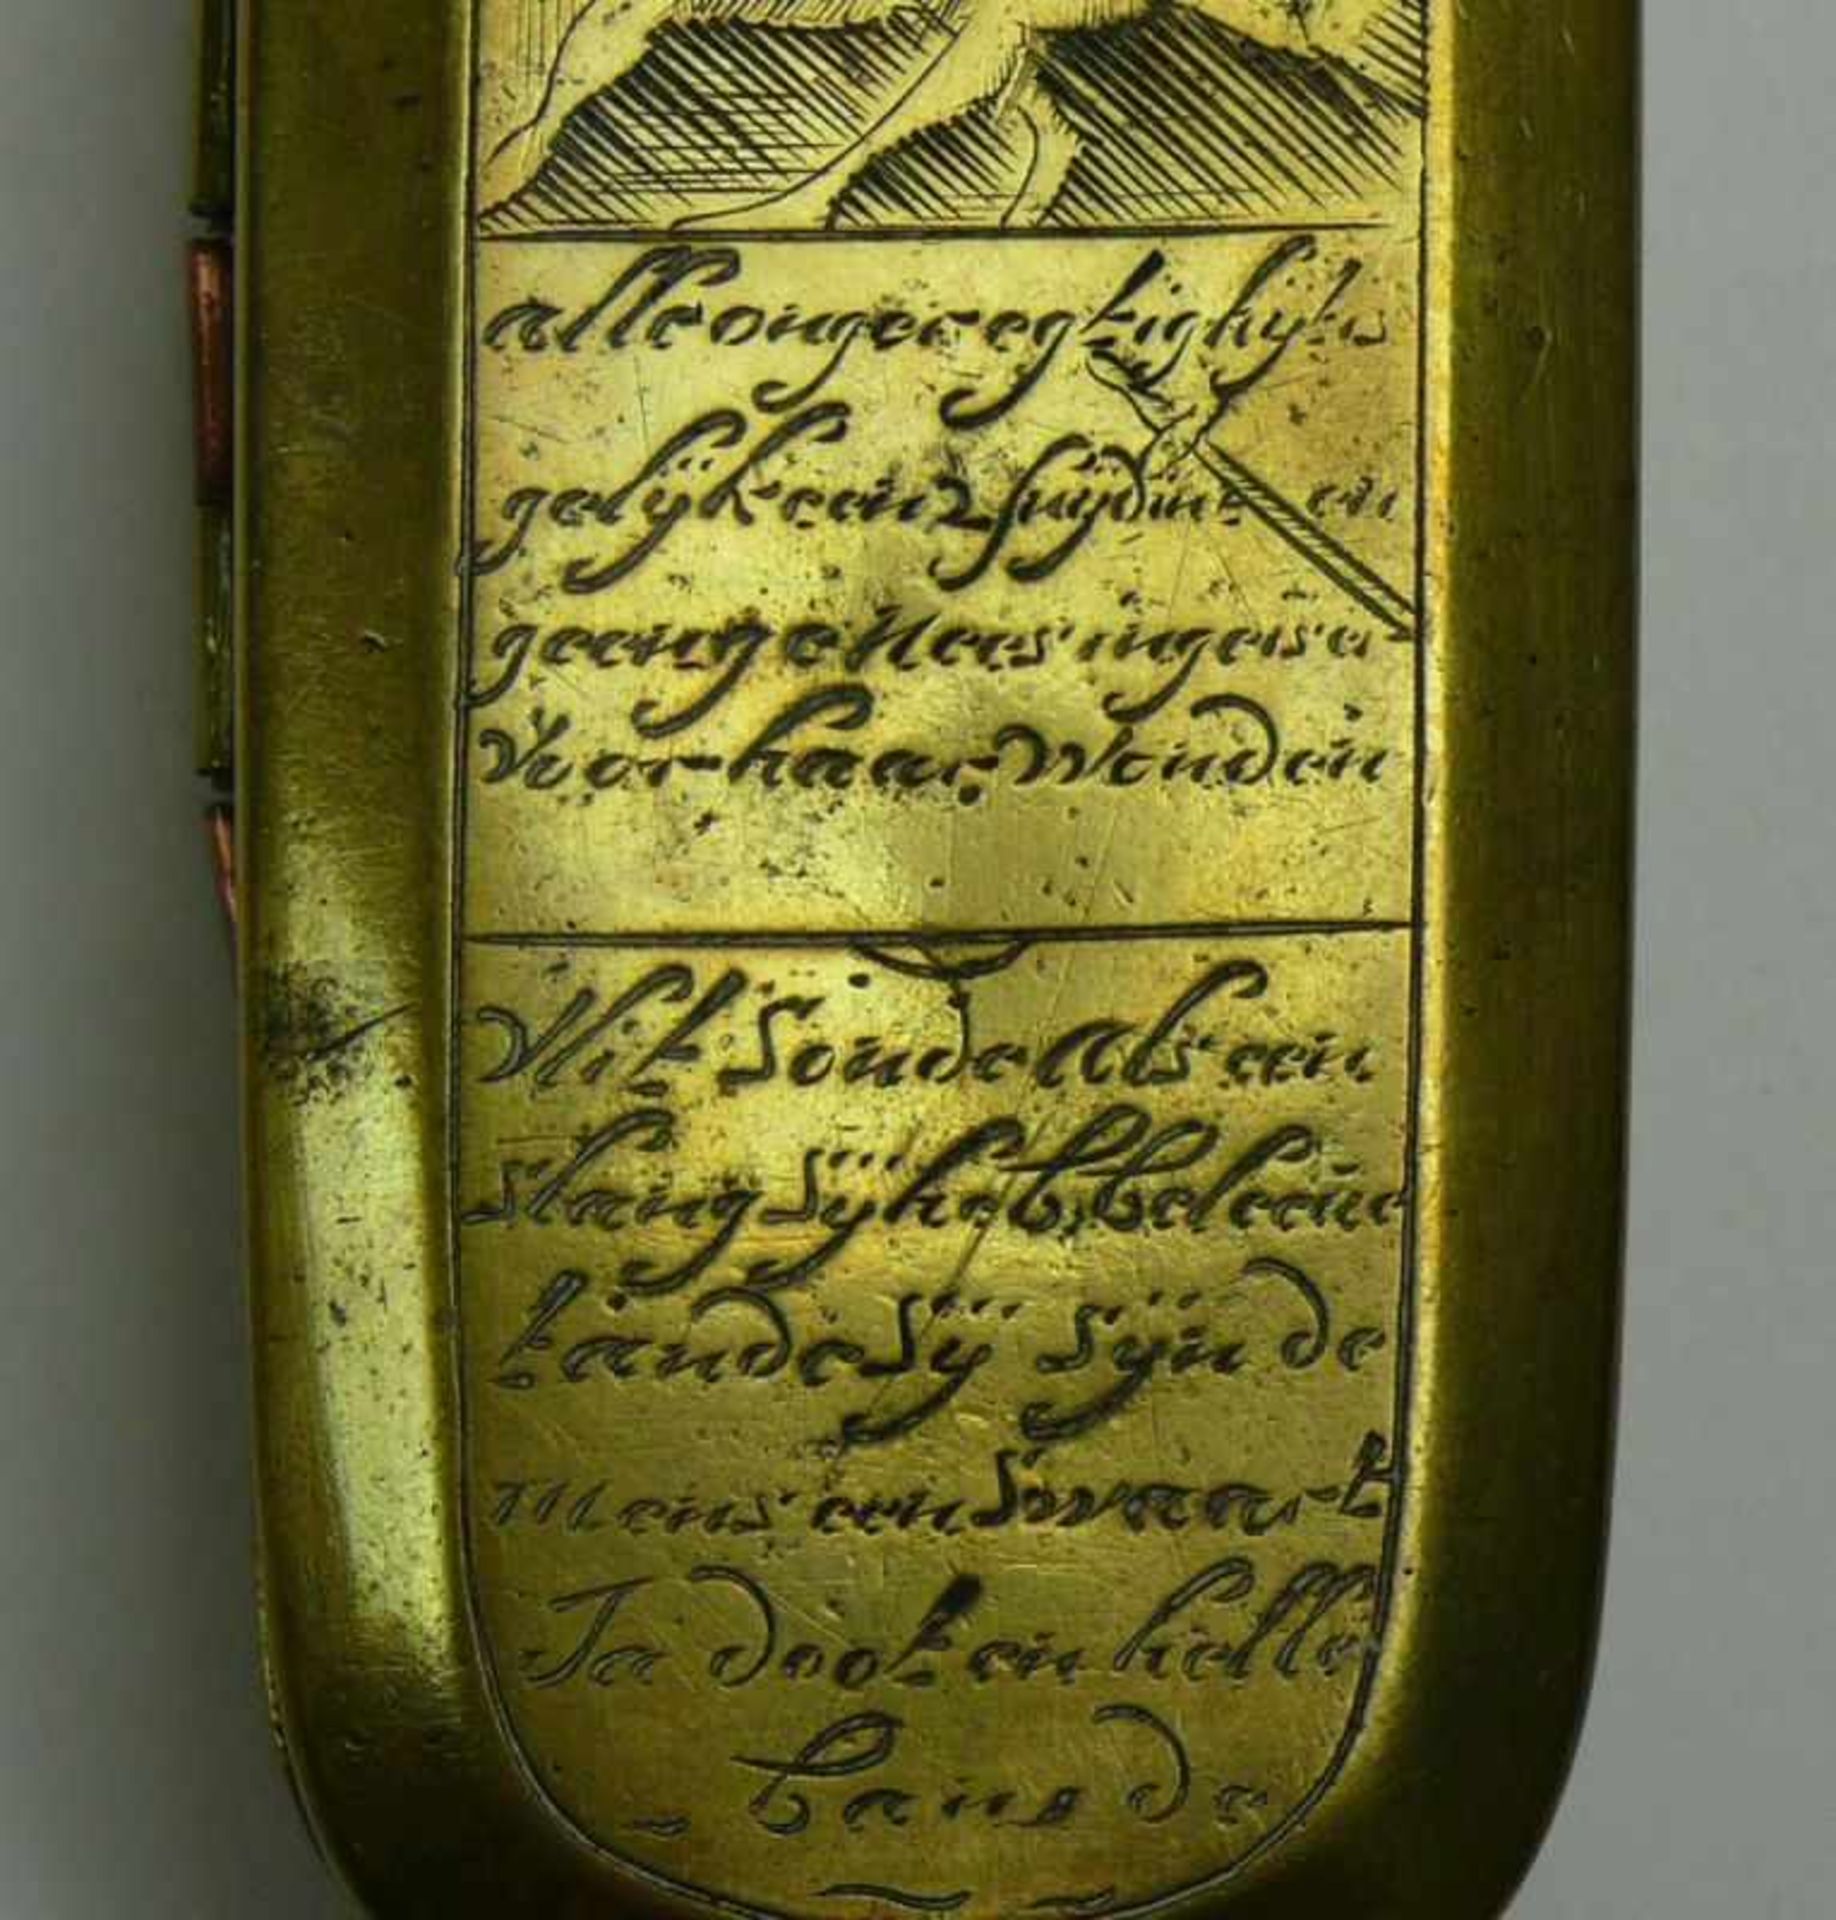 alle ongeregtighyt is
gelÿk een 2 snÿdint en
geen geneesinge is er
Voor haar Wonden
Vlit Sonde als een
slang Sÿ hebbe leeue
tande Sÿ Sÿn de
mens een Swaart
Ja doot en helle
bande